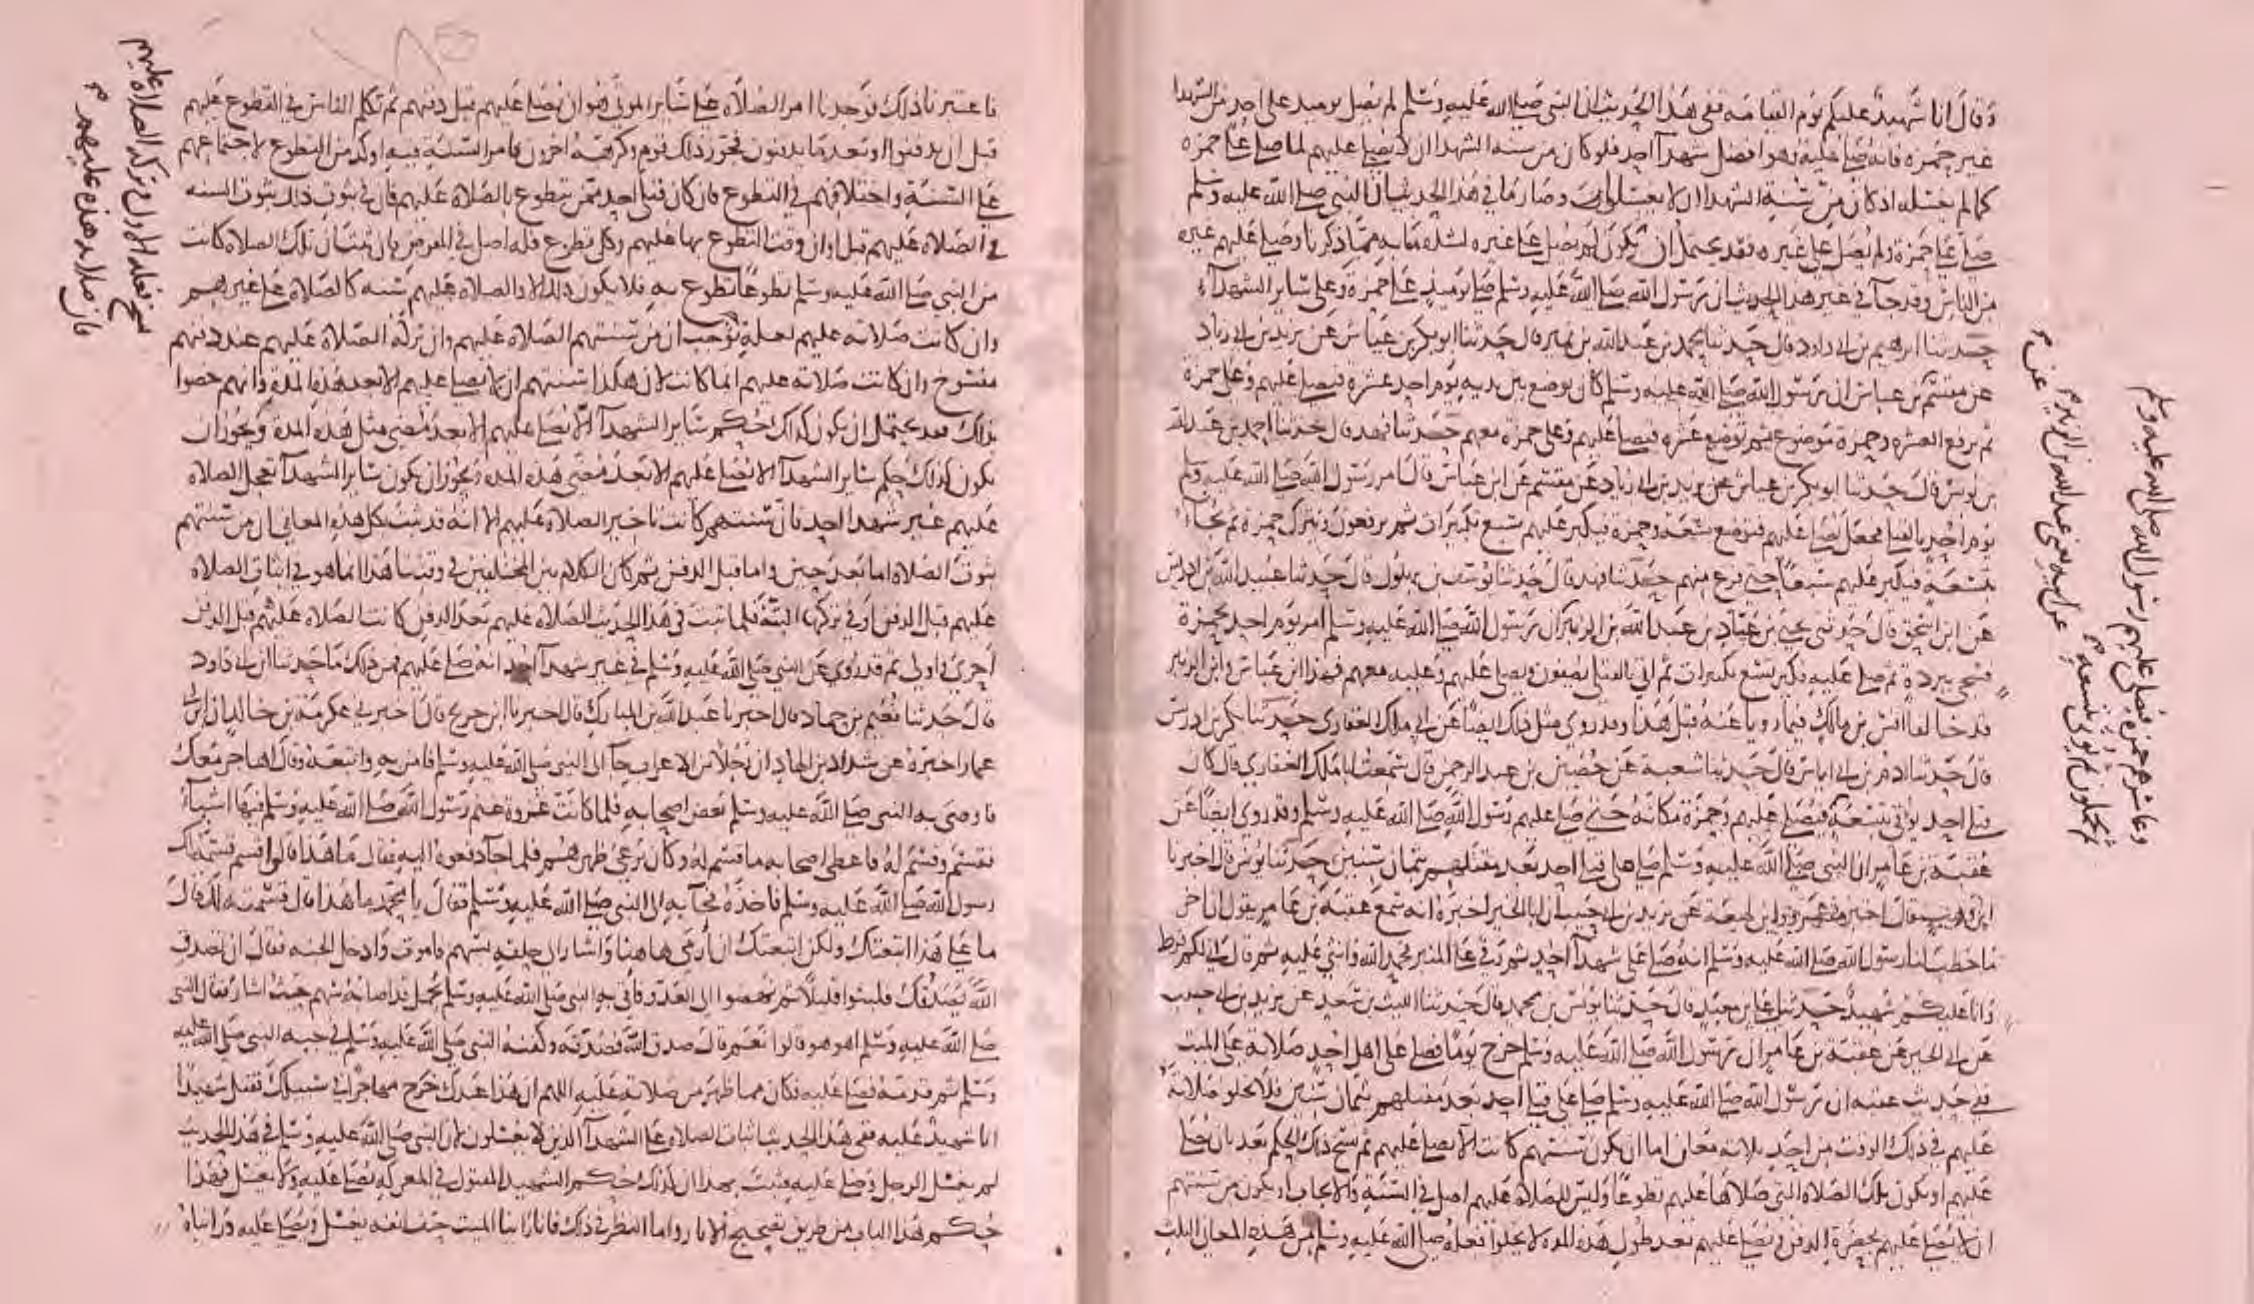 وقال انا شهيد عليكم يوم القيامة ففي هذا الحديث ان النبي صلى الله عليه وسلم لم يصل يومئذ على احد من الشهدا
غير حمزة فانه صلى عليه وهو افضل شهدآ احد فلو كان من سنة الشهدا ان لا يصلى عليهم لما صلى على حمزة
كما لم يغسله اذ كان من سنة الشهدا ان لا يغسلوا وصار ما في هذا الحديث ان النبي صلى الله عليه وسلم
صلى على حمزة ولم يصل على غيره فقد يحتمل ان يكون لم يصل على غيره لشدة ما به مما ذكرنا وصلى عليهم غيره
من الناس وقد جآ في غير هذا الحديث ان رسول الله صلى الله عليه وسلم صلى يومئذ على حمزة وعلى سائر الشهدآء
حدثنا ابرهيم بن ابي داود قال حدثنا محمد بن عبد الله بن نمير قال حدثنا ابو بكر بن عياش عن يزيد بن ابي زياد
عن مقسم عن ابن عباس ان رسول الله صلى الله عليه وسلم كان يوضع بين يديه يوم احد عشرة فيصلى عليهم وعلى حمزة
ثم يرفع العشره وحمزة موضوع ثم توضع عشره فيصلى عليهم وعلى حمزة معهم حدثنا فهد قال حدثنا احمد بن عبد الله
بن يونس قال حدثنا ابو بكر بن عياش عن يزيد بن ابي زياد عن مقسم عن ابن عباس قال امر رسول الله صلى الله عليه وسلم
يوم احد بالقتلى فجعل يصلى عليهم فيوضع تسعة وحمزة فيكبر عليهم سبع تكبيرات ثم يرفعون ويترك حمزة ثم يجآ
بتسعة فيكبر عليهم سبعا حتى فرغ منهم حدثنا فهد قال حدثنا يوسف بن بهلول قال حدثنا عبد الله بن ادريس
عن ابن اسحق قال حدثني يحيى بن عباد بن عبد الله بن الزبير ان رسول الله صلى الله عليه وسلم امر يوم احد بحمزة
فسجي ببرده ثم صلى عليه فكبر تسع تكبيرات ثم اتي بالقتلى يصفون ويصلى عليهم وعليه معهم فهذا ابن عباس وابن الزبير
قد خالفا انس بن مالك فيما روينا عنه قبل هذا وقد روي مثل ذلك ايضا عن ابي ملك الغفاري حدثنا بكر بن ادريس
قال حدثنا ادم بن ابي اياس قال حدثنا شعبة عن حصين بن عبد الرحمن قال سمعت ابا ملك الغفاري قال كان
قتلى احد يؤتى بتسعة فيصلى عليهم وحمزة مكانه حتى صلى عليهم رسول الله صلى الله عليه وسلم وقد روي ايضا عن
عقبة بن عامر ان النبي صلى الله عليه وسلم صلى على قتلى احد بعد مقتلهم بثمان سنين حدثنا يونس قال اخبرنا
ابن وهب قال اخبرني عمرو وابن لهيعة عن يزيد بن ابي حبيب ان ابا الخير اخبره انه سمع عقبة بن عامر يقول ان اخر
ما خطب لنا رسول الله صلى الله عليه وسلم انه صلى على شهدآ احد ثم رقي على المنبر فحمد الله واثنى عليه ثم قال اني لكم فرط
وانا عليكم شهيد حدثنا علي بن معبد قال حدثنا يونس بن محمد قال حدثنا الليث بن سعد عن يزيد بن ابي حبيب
عن ابي الخير عن عقبة بن عامر ان رسول الله صلى الله عليه وسلم خرج يوما فصلى على اهل احد صلاته على الميت
ففي حديث عقبه ان رسول الله صلى الله عليه وسلم صلى على قتلى احد بعد مقتلهم بثمان سنين فلا يخلو صلاته
عليهم في ذلك الوقت من احد ثلاثة معان اما ان يكون سنتهم كانت ان لا يصلى عليهم ثم نسخ ذلك الحكم بعد بان يصلى
عليهم او يكون تلك الصلاة التي صلاها عليهم تطوعا وليس للصلاة عليهم اصل في السنة والايجاب او يكون من سنتهم
ان لا يصلى عليهم بحضرة الدفن ويصلى عليهم بعد طول هذه المدة لا يخلوا فعله صلى الله عليه وسلم من هذه المعاني الثلث
عن ابيه يعني عبد الله بن الزبير
ثم يحملون ثم يوتى بتسعة
وعاشرهم حمزة فيصلى عليهم رسول الله صلى الله عليه وسلم
فاعتبرنا ذلك فوجدنا امر الصلاة على سائر الموتى هو ان يصلى عليهم قبل دفنهم ثم تكلم الناس في التطوع عليهم
قبل ان يدفنوا وبعد ما يدفنون فجوز ذلك قوم وكرهه اخرون فامر السنة فيه اوكد من التطوع لاجتماعهم
على السنة واختلافهم في التطوع فان كان قتلى احد ممن تطوع بالصلاة عليهم كان في ثبوت ذلك ثبوت السنه
في الصلاة عليهم قبل اوان وقت التطوع بها عليهم وكل تطوع فله اصل في الفرض فان ثبت ان تلك الصلاة كانت
من النبي صلى الله عليه وسلم تطوعا تطوع به فلا يكون ذلك الا والصلاة عليهم سنة كالصلاة على غيرهم
وان كانت صلاته عليهم لعلة توجب ان من سنتهم الصلاة عليهم وان تركه الصلاة عليهم عند دفنهم
منسوخ وان كانت صلاته عليهم انما كانت لان هكذا سنتهم ان لا يصلى عليهم الا بعد هذه المدة وانهم خصوا
بذلك فقد يحتمل ان يكون كذلك حكم سائر الشهدآ الا يصلى عليهم الا بعد مضي مثل هذه المدة ويجوز ان
يكون كذلك حكم سائر الشهدآ الا يصلى عليهم الا بعد مضي هذه المدة ويجوز ان يكون سائر الشهدآ تعجل الصلاه
عليهم غير شهدآ احد فان سنتهم كانت تاخير الصلاة عليهم الا انه قد ثبت بكل هذه المعاني ان من سنتهم
ثبوت الصلاة اما بعد حين واما قبل الدفن ثم كان الكلام بين المختلفين في وقتنا هذا انما هو في اثبات الصلاه
عليهم قبل الدفن او في تركها البتة فلما ثبت في هذا الحديث الصلاة عليهم بعد الدفن كانت الصلاة عليهم قبل الدفن
احرى واولى ثم قد روي عن النبي صلى الله عليه وسلم في غير شهدآ احد انه صلى عليهم فمن ذلك ما حدثنا ابن ابي داود
قال حدثنا نعيم بن حماد قال اخبرنا عبد الله بن المبارك قال اخبرنا ابن جريج قال اخبرني عكرمة بن خالد ان ابن ابي
عمار اخبره عن شداد بن الهاد ان رجلا من الاعراب جآ الى النبي صلى الله عليه وسلم فامن به واتبعه وقال اهاجر معك
فاوصى به النبي صلى الله عليه وسلم بعض اصحابه فلما كانت غزوة غنم رسول الله صلى الله عليه وسلم فيها اشيآء
فقسم وقسم له فاعطى اصحابه ما قسم له وكان يرعى ظهرهم فلما جآ دفعوه اليه فقال ما هذا قالوا قسم قسمه لك
رسول الله صلى الله عليه وسلم فاخذه فجآ به الى النبي صلى الله عليه وسلم فقال يا محمد ما هذا قال قسمته لك قال
ما على هذا اتبعتك ولكن اتبعتك ان ارمى هاهنا واشار الى حلقه بسهم فاموت وادخل الجنه فقال ان تصدق
الله يصدقك فلبثوا قليلا ثم نهضوا الى العدو فاتي به النبي صلى الله عليه وسلم يحمل قد اصابه سهم حيث اشار فقال النبي
صلى الله عليه وسلم اهو هو قالوا نعم قال صدق الله فصدقه وكفنه النبي صلى الله عليه وسلم في جبة النبي صلى الله عليه
وسلم ثم قدمه فصلى عليه فكان مما ظهر من صلاته عليه اللهم ان هذا عبدك خرج مهاجرا في سبيلك فقتل شهيدا
انا شهيد عليه ففي هذا الحديث اثبات الصلاة على الشهدآ الذين لا يغسلون لان النبي صلى الله عليه وسلم في هذا الحديث
لم يغسل الرجل وصلى عليه فثبت بهذا ان كذلك حكم الشهيد المقتول في المعركه يصلى عليه ولا يغسل فهذا
حكم هذا الباب من طريق تصحيح الاثار واما النظر في ذلك فانا راينا الميت حتف انفه يغسل ويصلى عليه وراياه
نسخ فعله الاول وترك الصلاة عليهم
فان صلاته هذه عليهم